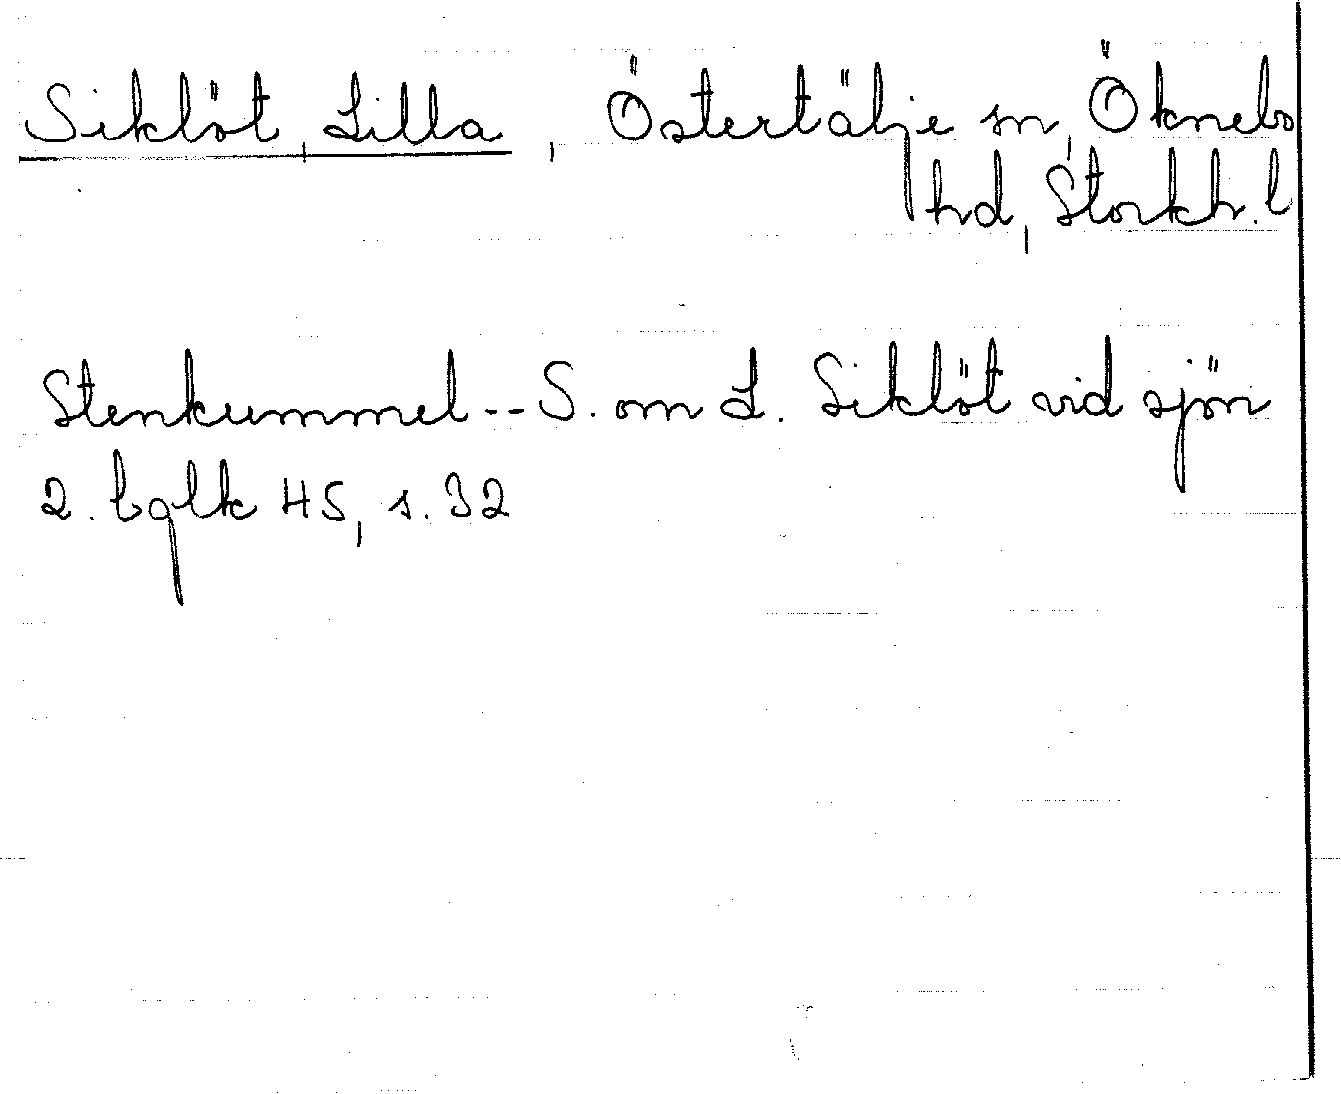 Siklöt, Lilla, Östertälje sn, Öknebo
hd, Stockh. l
Stenkummel -- S. om L. Siklöt vid sjön
2. bglk 45, s. 32